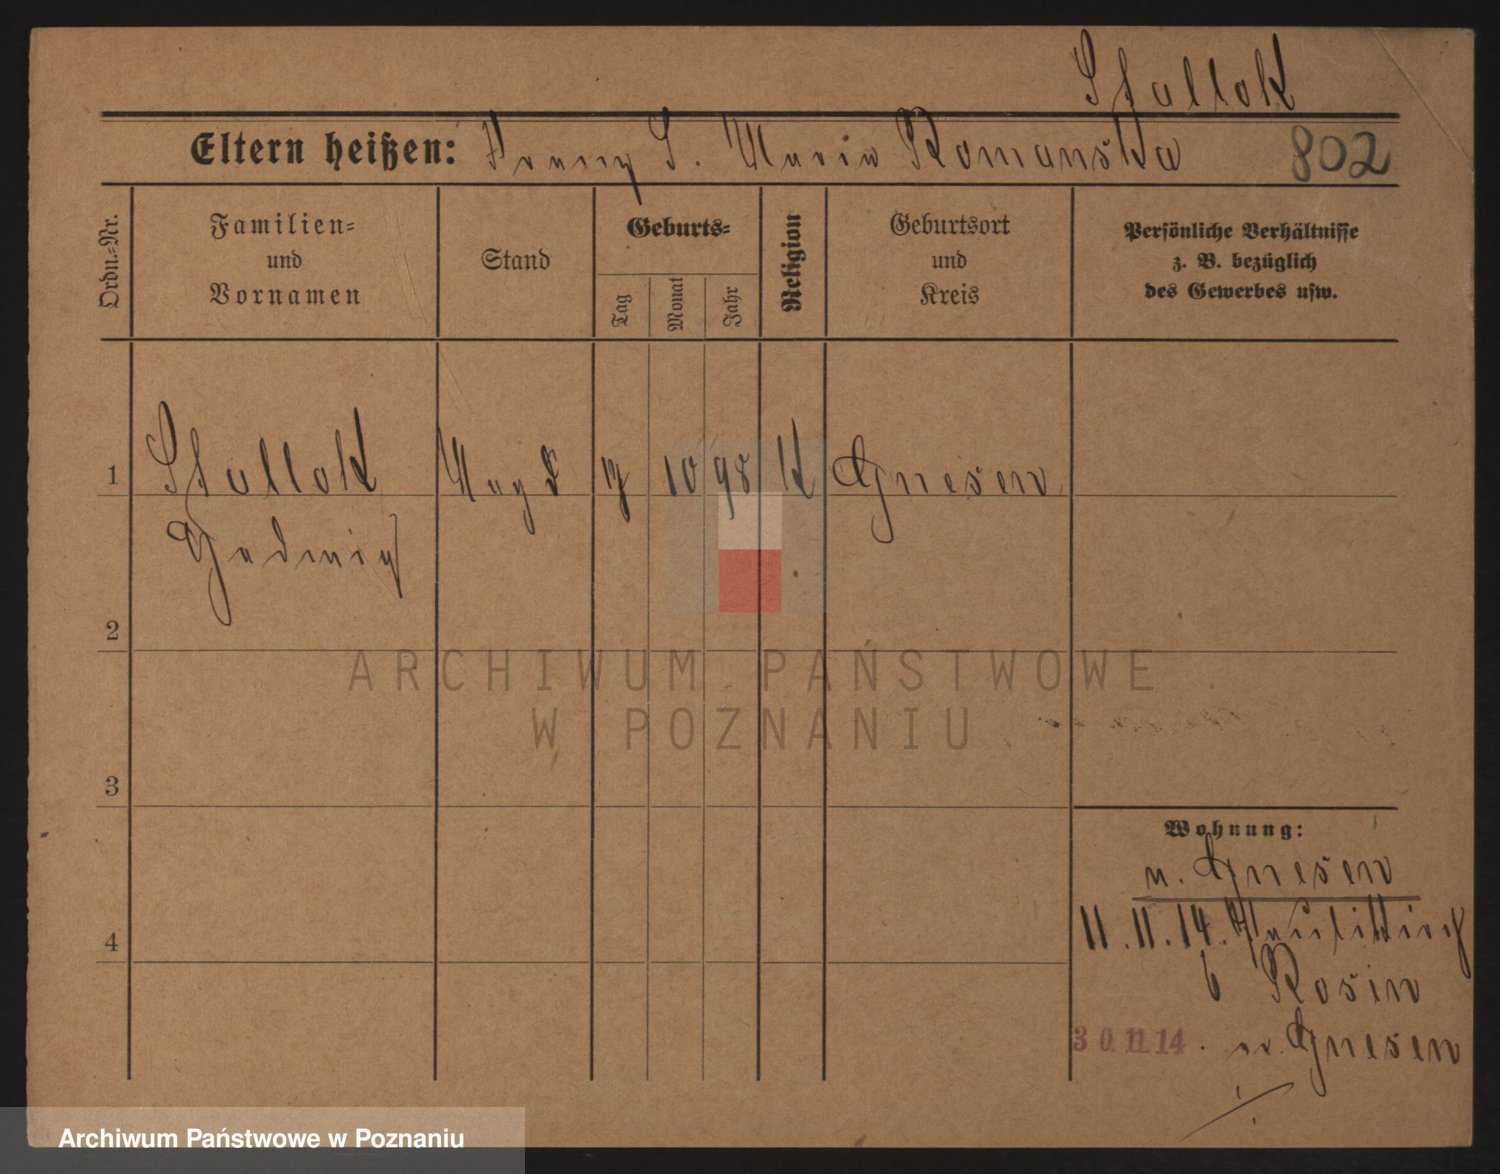 Stallok
Eltern heißen: Franz S. Maria Romanska 802
Ordn.-Nr.
Familien-
und
Vornamen
Stand
Geburts-
Tag
Monat
Jahr
Religion
Geburtsort
und
Kreis
Persönliche Verhältnisse
z. B. bezüglich
des Gewerbes usw.
1 Stallok Magd 17 10 98 K Gnesen
Hedwig
2
ARCHIWUM PAŃSTWOWE
W POZNANIU
3
Wohnung:
n. Gnesen
4
11.11.14.
b Rosin
30.11.14. n. Gnesen
Archiwum Państwowe w Poznaniu